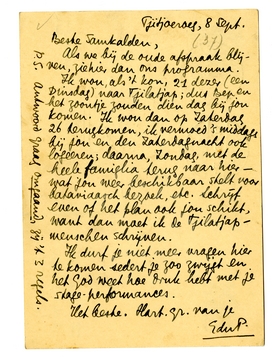 Tjitjoeroeg, 8 Sept.
(37)
Beste Samkalden,
Als we bij de oude afspraak blij-
ven, ziehier dan ons programma.
Ik wou, als 't kon, 21 dezes (een
Dinsdag) naar Tjilatjap; dus Bep en
het zoontje zouden dien dag bij jou
komen. Ik wou dan op Zaterdag
26 terugkomen, ik vermoed 's middags
bij jou en den Zaterdagnacht ook
logeeren; daarna, Zondag, met de
heele famiglia terug naar hier —
wat jou weer beschikbaar stelt voor
Soekaboemisch bezoek, etc. Schrijf
even of het plan ook jou schikt,
want dan moet ik de Tjilatjap-
menschen schrijven.
Ik durf je niet meer vragen hier
te komen sedert je zoo zwijgt en
het God weet hoe druk hebt met je
stage-performances.
Het beste. Hart. gr. van je
EduP.
P.S. Antwoord graag omgaand, zij 't 3 regels.